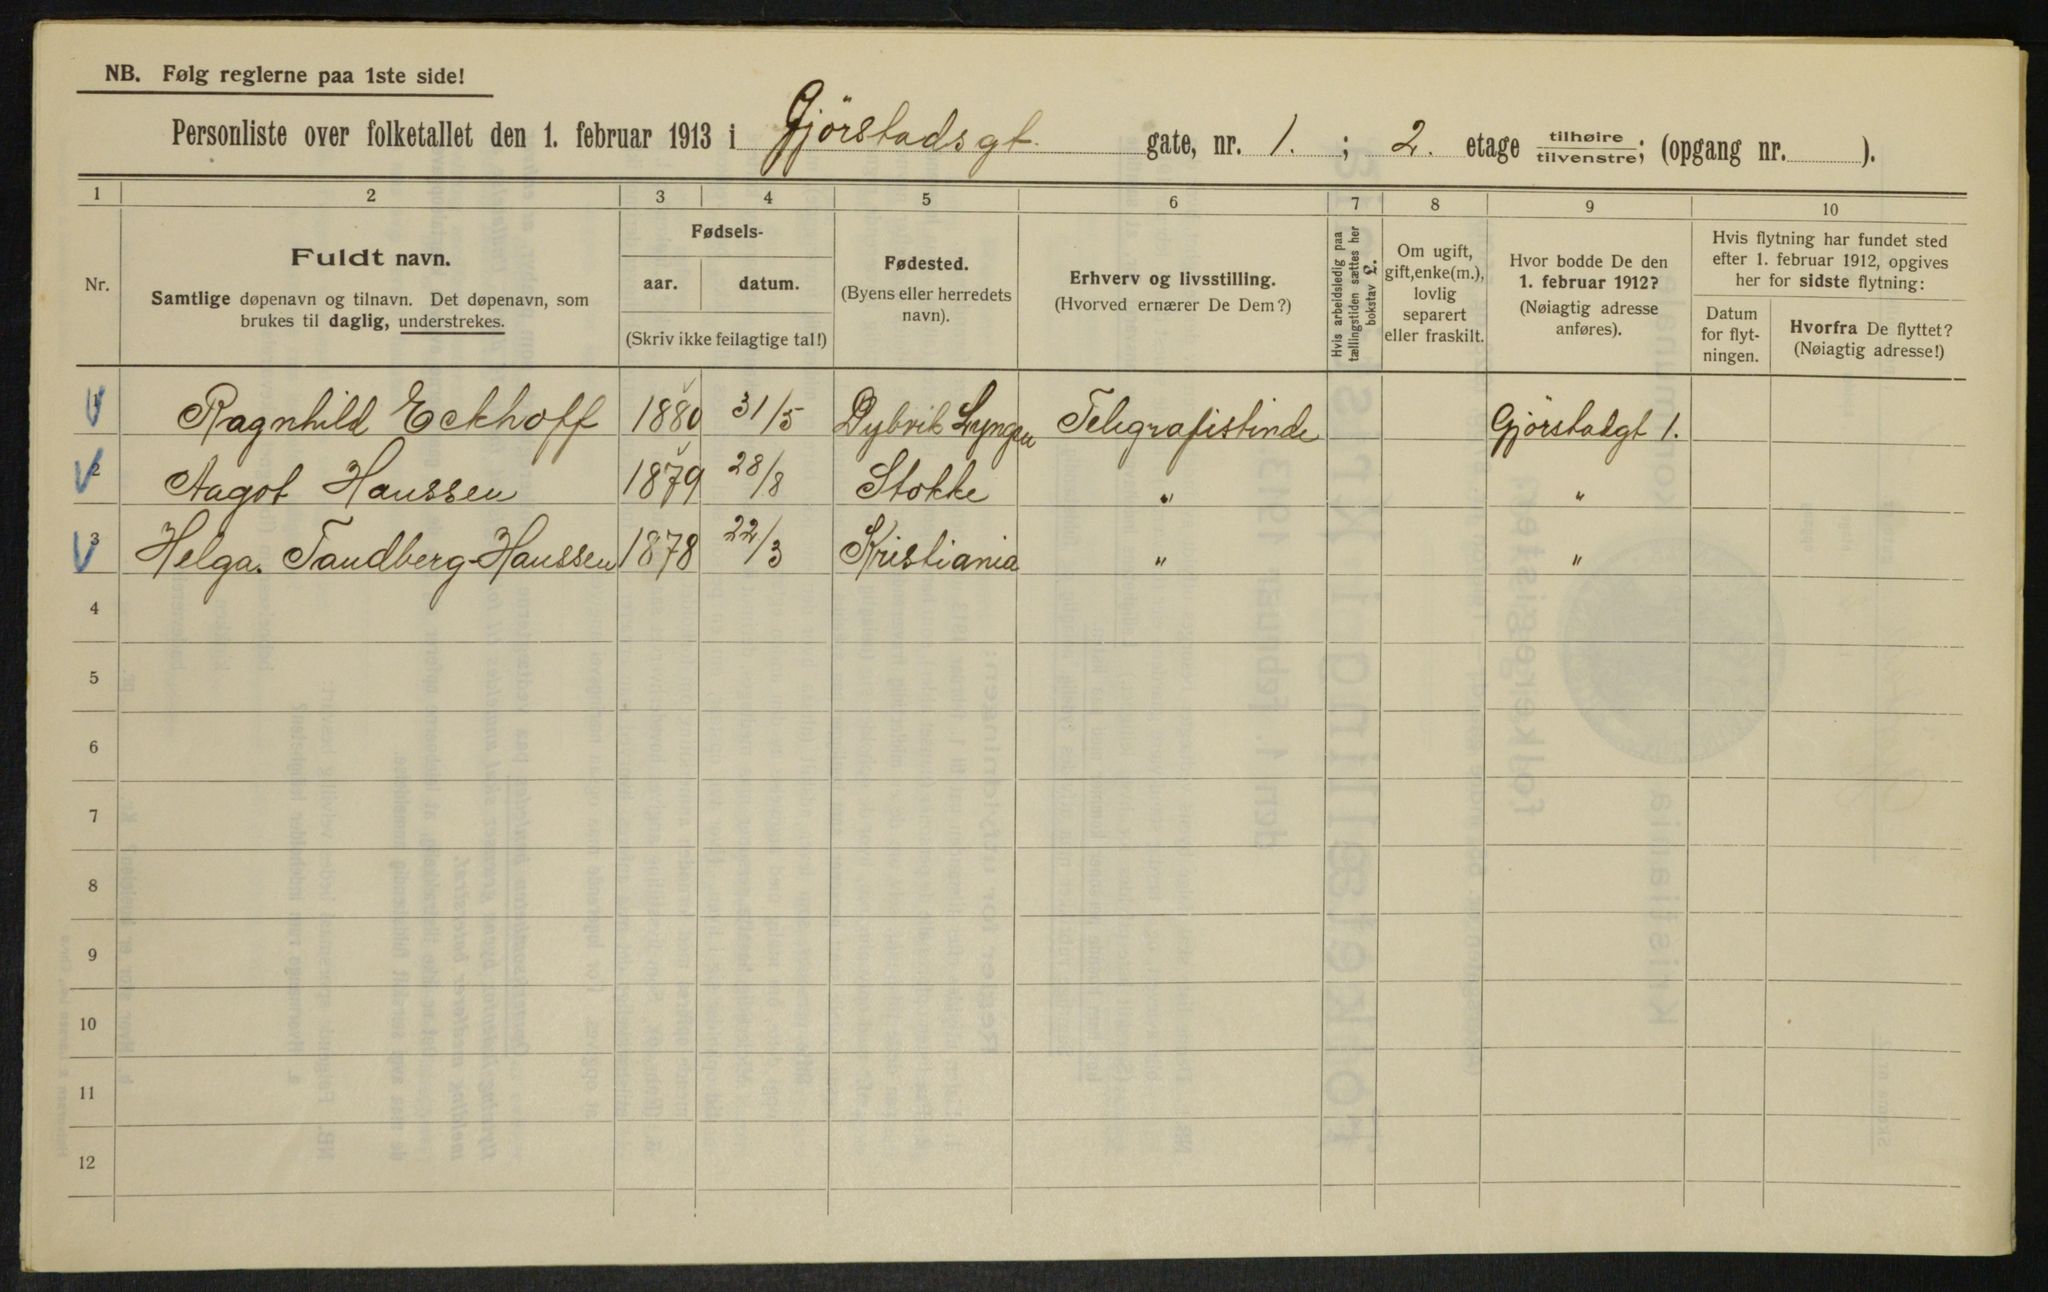 NB. Følg reglerne paa 1ste side!
Personliste over folketallet den 1. februar 1913 i Gjörstadsgt. gate, nr. 1. ; 2. etage tilhøire/tilvenstre; (opgang nr. ).
1 2 3 4 5 6 7 8 9 10
Nr.
Fuldt navn.
Samtlige døpenavn og tilnavn. Det døpenavn, som
brukes til daglig, understrekes.
Fødsels-
aar. datum.
(Skriv ikke feilagtige tal!)
Fødested.
(Byens eller herredets
navn).
Erhverv og livsstilling.
(Hvorved ernærer De Dem?)
Hvis arbeidsledig paa
tællingstiden sættes her
bokstav L.
Om ugift,
gift, enke(m.),
lovlig
separert
eller fraskilt.
Hvor bodde De den
1. februar 1912?
(Nøiagtig adresse
anføres).
Hvis flytning har fundet sted
efter 1. februar 1912, opgives
her for sidste flytning:
Datum
for flyt-
ningen.
Hvorfra De flyttet?
(Nøiagtig adresse!)
1 Ragnhild Eckhoff 1880 31/5 Dybvik Lyngen Telegrafistinde Gjörstadgt 1.
2 Aagot Hanssen 1879 28/8 Stokke " "
3 Helga. Tandberg-Hanssen 1878 22/3 Kristiania " "
4
5
6
7
8
9
10
11
12